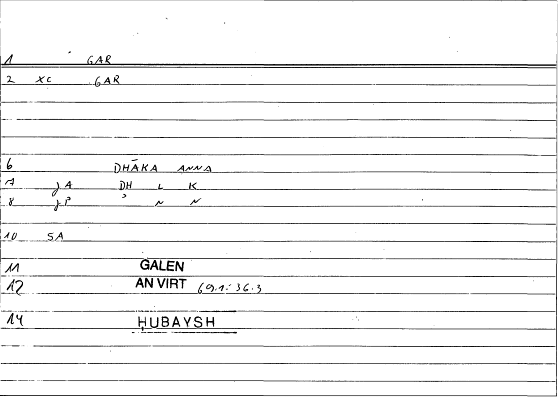 1 GAR
2 XC GAR
6 DHĀKA ANNA
7 JA DH L K
8 JP N N
10 SA
11 GALEN
12 AN VIRT 69.1: 36.3
14 ḤUBAYSH